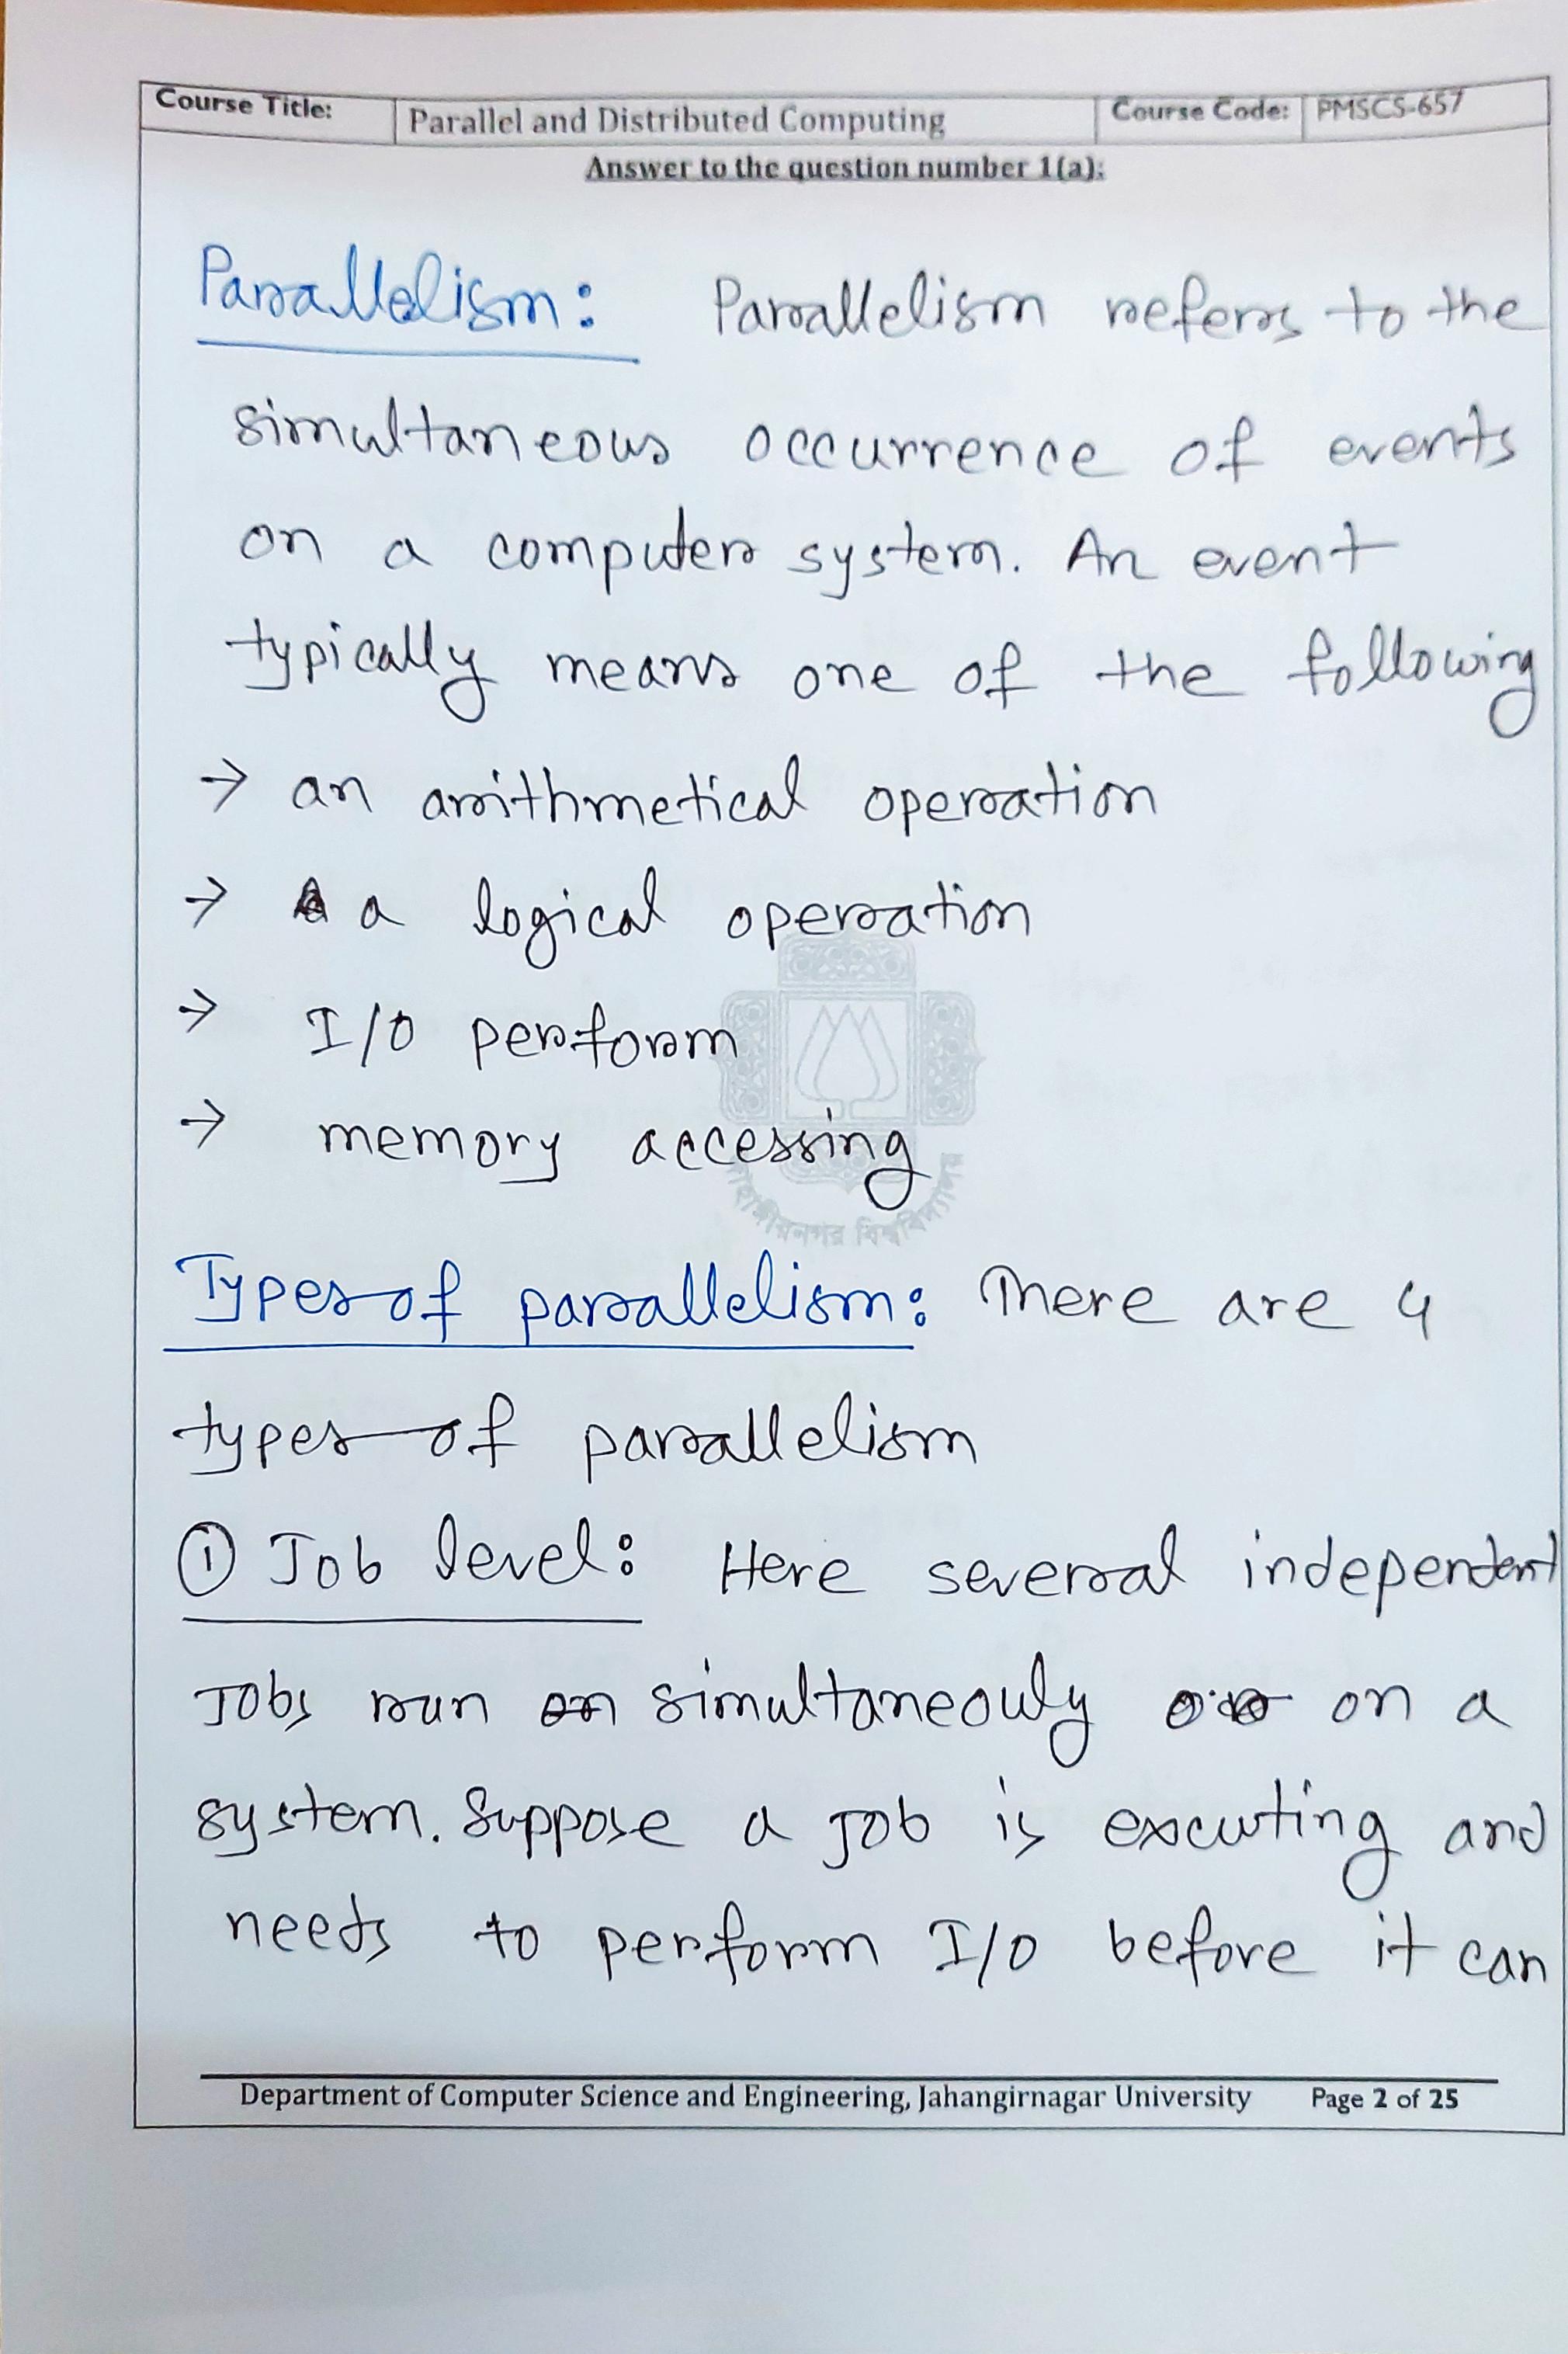 Course Title: Parallel and Distributed Computing Course Code: PMSCS-657
Answer to the question number 1(a):
Parallelism: Parallelism refers to the
simultaneous occurrence of events
on a computer system. An event
typically means one of the following
→ an arithmetical operation
→ a logical operation
→ I/O perform
→ memory accessing
জাহাঙ্গীরনগর বিশ্ববিদ্যালয়
Types of parallelism: There are 4
types of parallelism
① Job level: Here several independent
Jobs run on simultaneouly on a
system. Suppose a Job is executing and
needs to perform I/O before it can
Department of Computer Science and Engineering, Jahangirnagar University Page 2 of 25